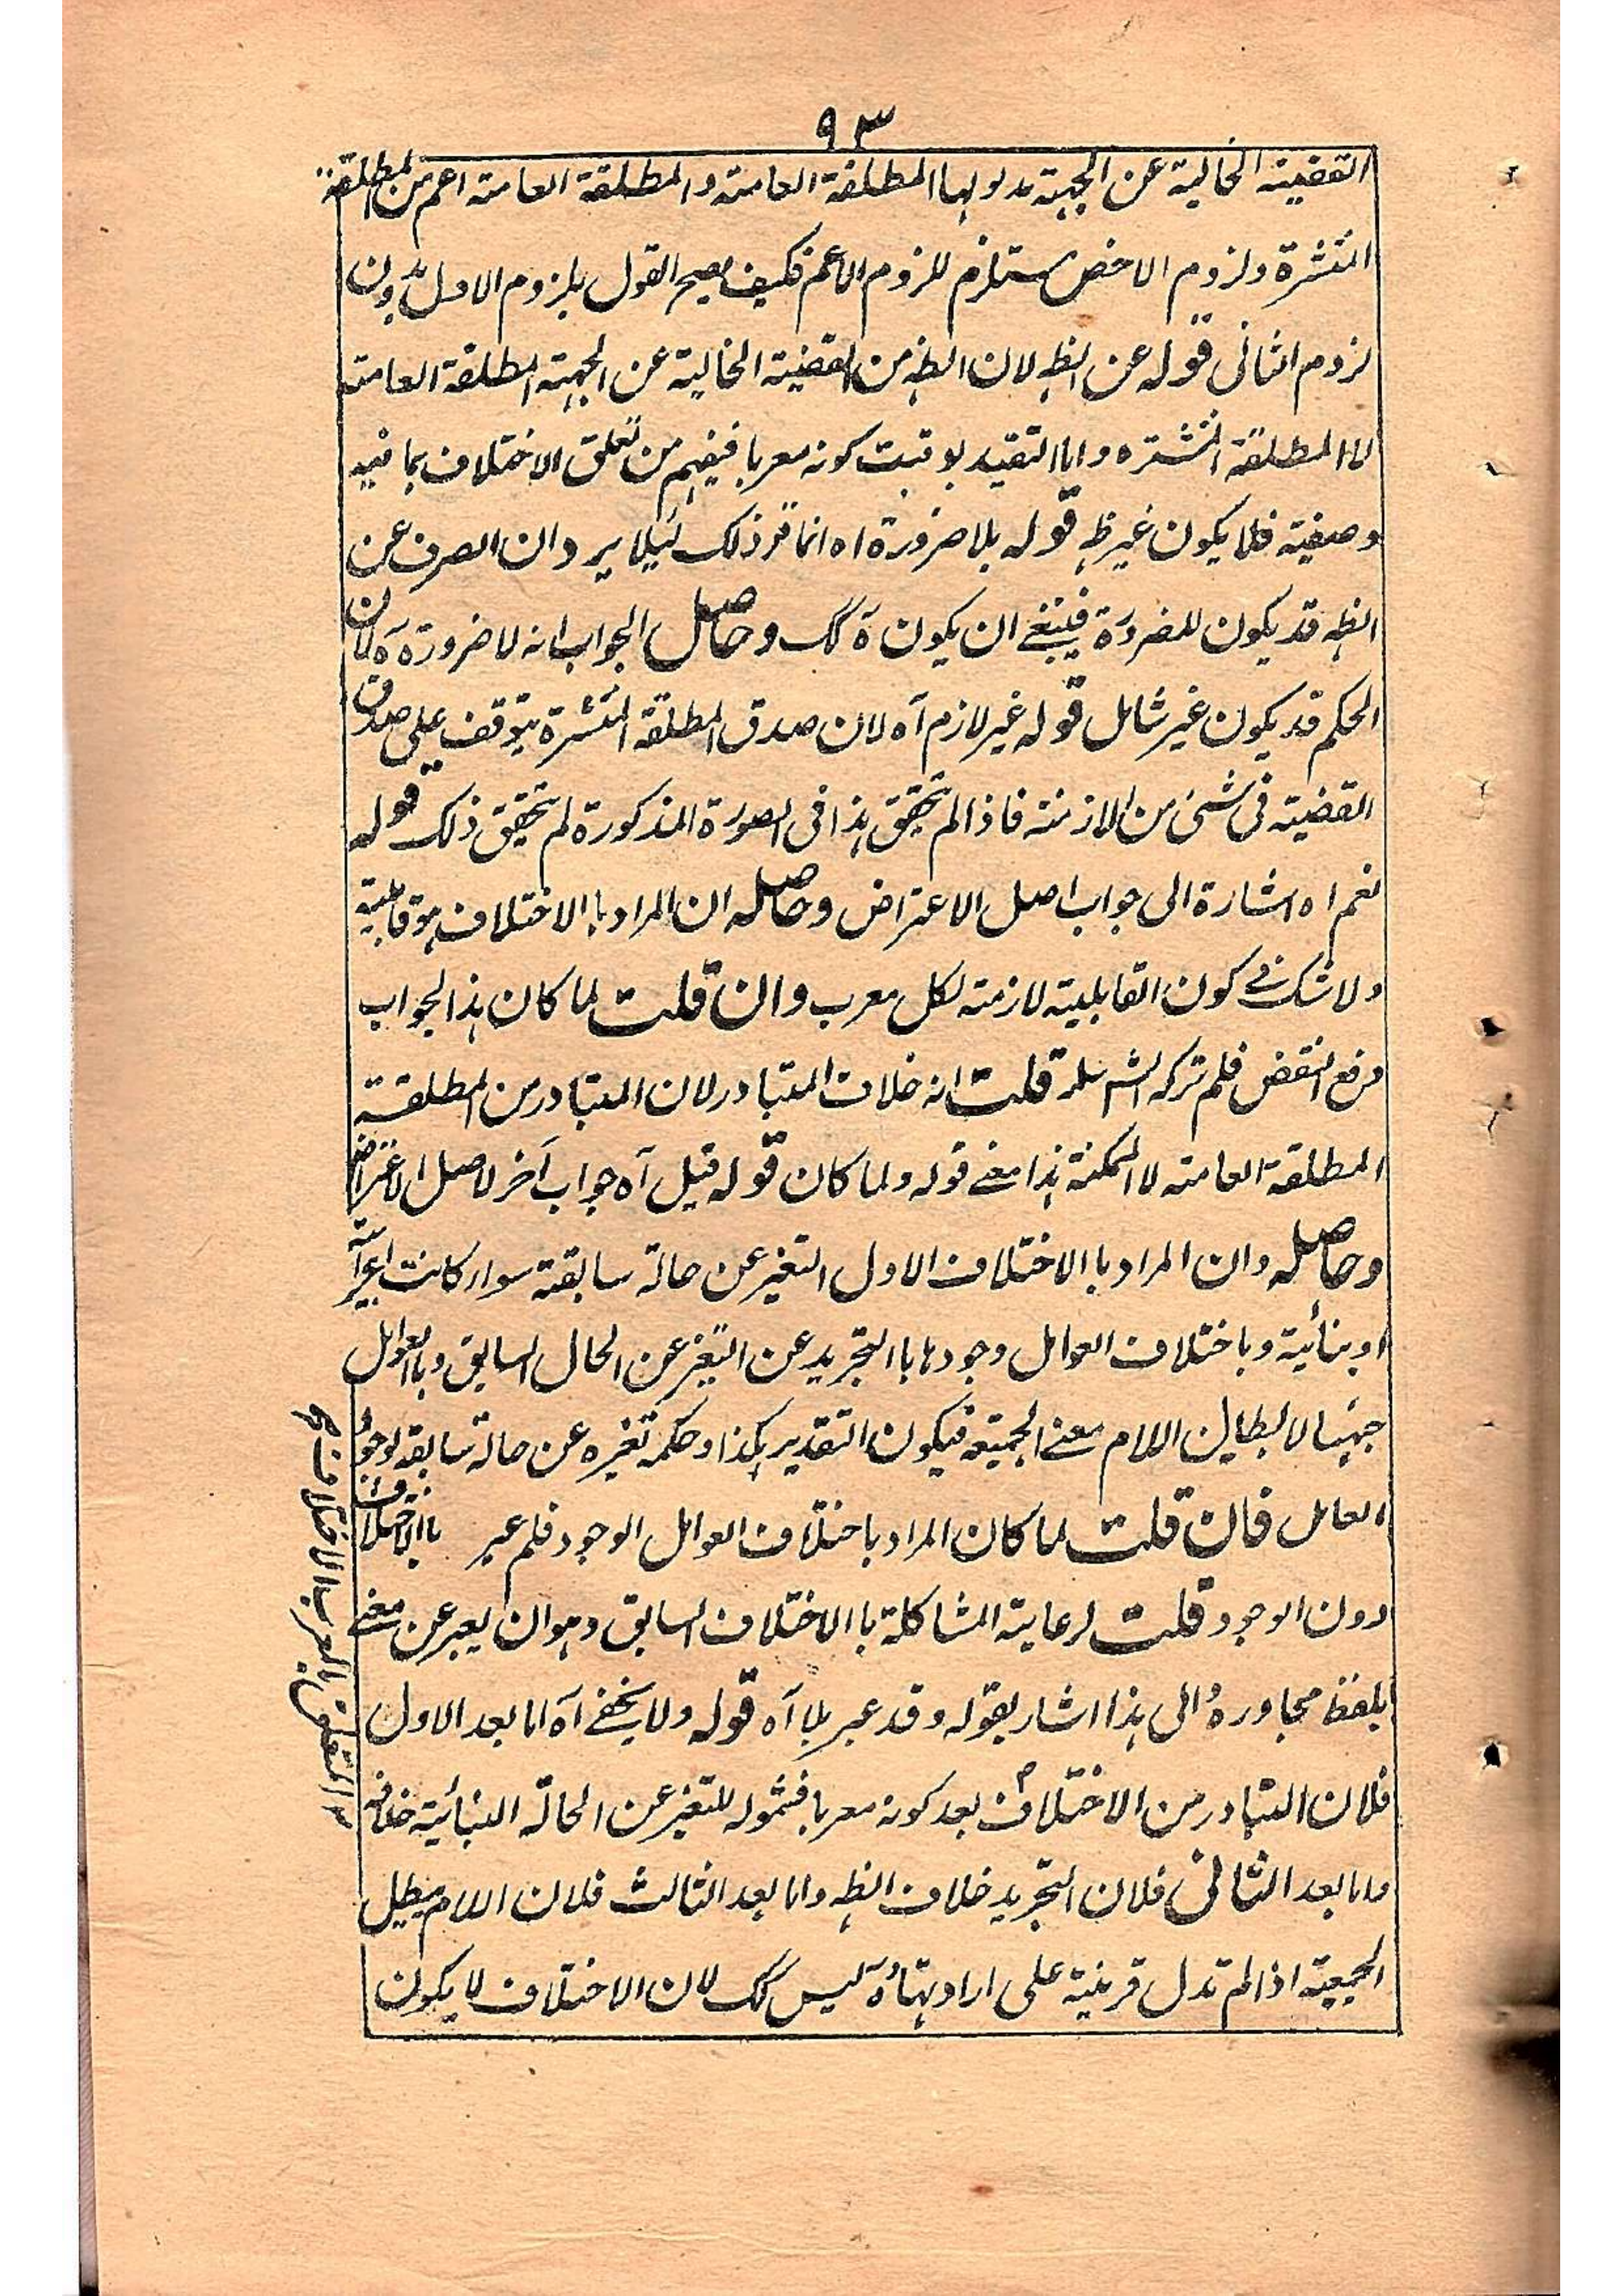 ٩٣
القضية الخالية عن الجهة مدلولها المطلقة العامة والمطلقة العامة اعم من المطلقة
المنتشرة ولزوم الاخص مستلزم للزوم الاعم فكيف يصح القول بلزوم الاول بدون
لزوم الثانى قوله عن الظه لان الظه من القضية الخالية عن الجهة المطلقة العامة
لا المطلقة المنتشره واما التقييد بوقت كونه معربا فيفهم من تعلق الاختلاف بما فيه
وصفية فلا يكون غير ظه قوله بلا ضرورة اه انما قرر ذلك لئلا يرد ان الصرف عن
الظه قد يكون للضرورة فينبغے ان يكون ة كك وحاصل الجواب انه لا ضرورة ه لان
الحكم قد يكون غير شامل قوله غير لازم آه لان صدق المطلقة المنتشرة يتوقف على صدق
القضية فى شئ من الازمنة فاذا لم يتحقق هذا فى الصورة المذكورة لم يتحقق ذلك قوله
نعم اه اشارة الى جواب اصل الاعتراض وحاصله ان المراد با الاختلاف هو قابلية
ولا شك فے كون القابلية لازمة لكل معرب وان قلت لما كان هذا الجواب
دفع النقض فلم تركه الشر قلت انه خلاف المتبادر لان المتبادر من المطلقة
المطلقة العامة لا الممكنة هذا معنے قوله ولما كان قوله قيل آه جواب آخر لاصل الاعتراض
وحاصله وان المراد با الاختلاف الاول التغير عن حالة سابقة سواء كانت اعرابية
او بنائية وباختلاف العوامل وجودها با التجريد عن التغير عن الحال السابق وبا العوامل
جنسها لابطال اللام معنے الجمعية فيكون التقدير هكذا وحكمه تغيره عن حالة سابقة لوجود
العامل فان قلت لما كان المراد باختلاف العوامل الوجود فلم عبر با الاختلاف
دون الوجود قلت لرعاية المشاكلة با الاختلاف السابق وهو ان يعبر عن معنے
بلفظ مجاوره والى هذا اشار بقوله وقد عبر بلا آه قوله ولا يخفے آه اما بعد الاول
فلان المتبادر من الاختلاف بعد كونه معربا فشموله للتغير عن الحالة البنائية خلافه
واما بعد الثانى فلان التجريد خلاف الظه واما بعد الثالث فلان اللام يبطل
الجمعية اذا لم تدل قرينة على ارادتها وة ليس كك لان الاختلاف لا يكون